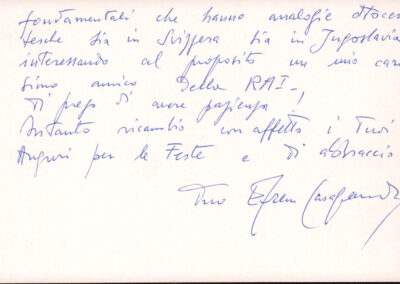 fondamentali che hanno analogie
tesche sia in Svizzera sia in Jugoslavia
interessando al proposito un mio caris
simo amico della RAI -,
Ti prego di avere pazienza!
Intanto ricambio con affetto i Tuoi
Auguri per le Feste e Ti abbraccio
Tuo Efrem